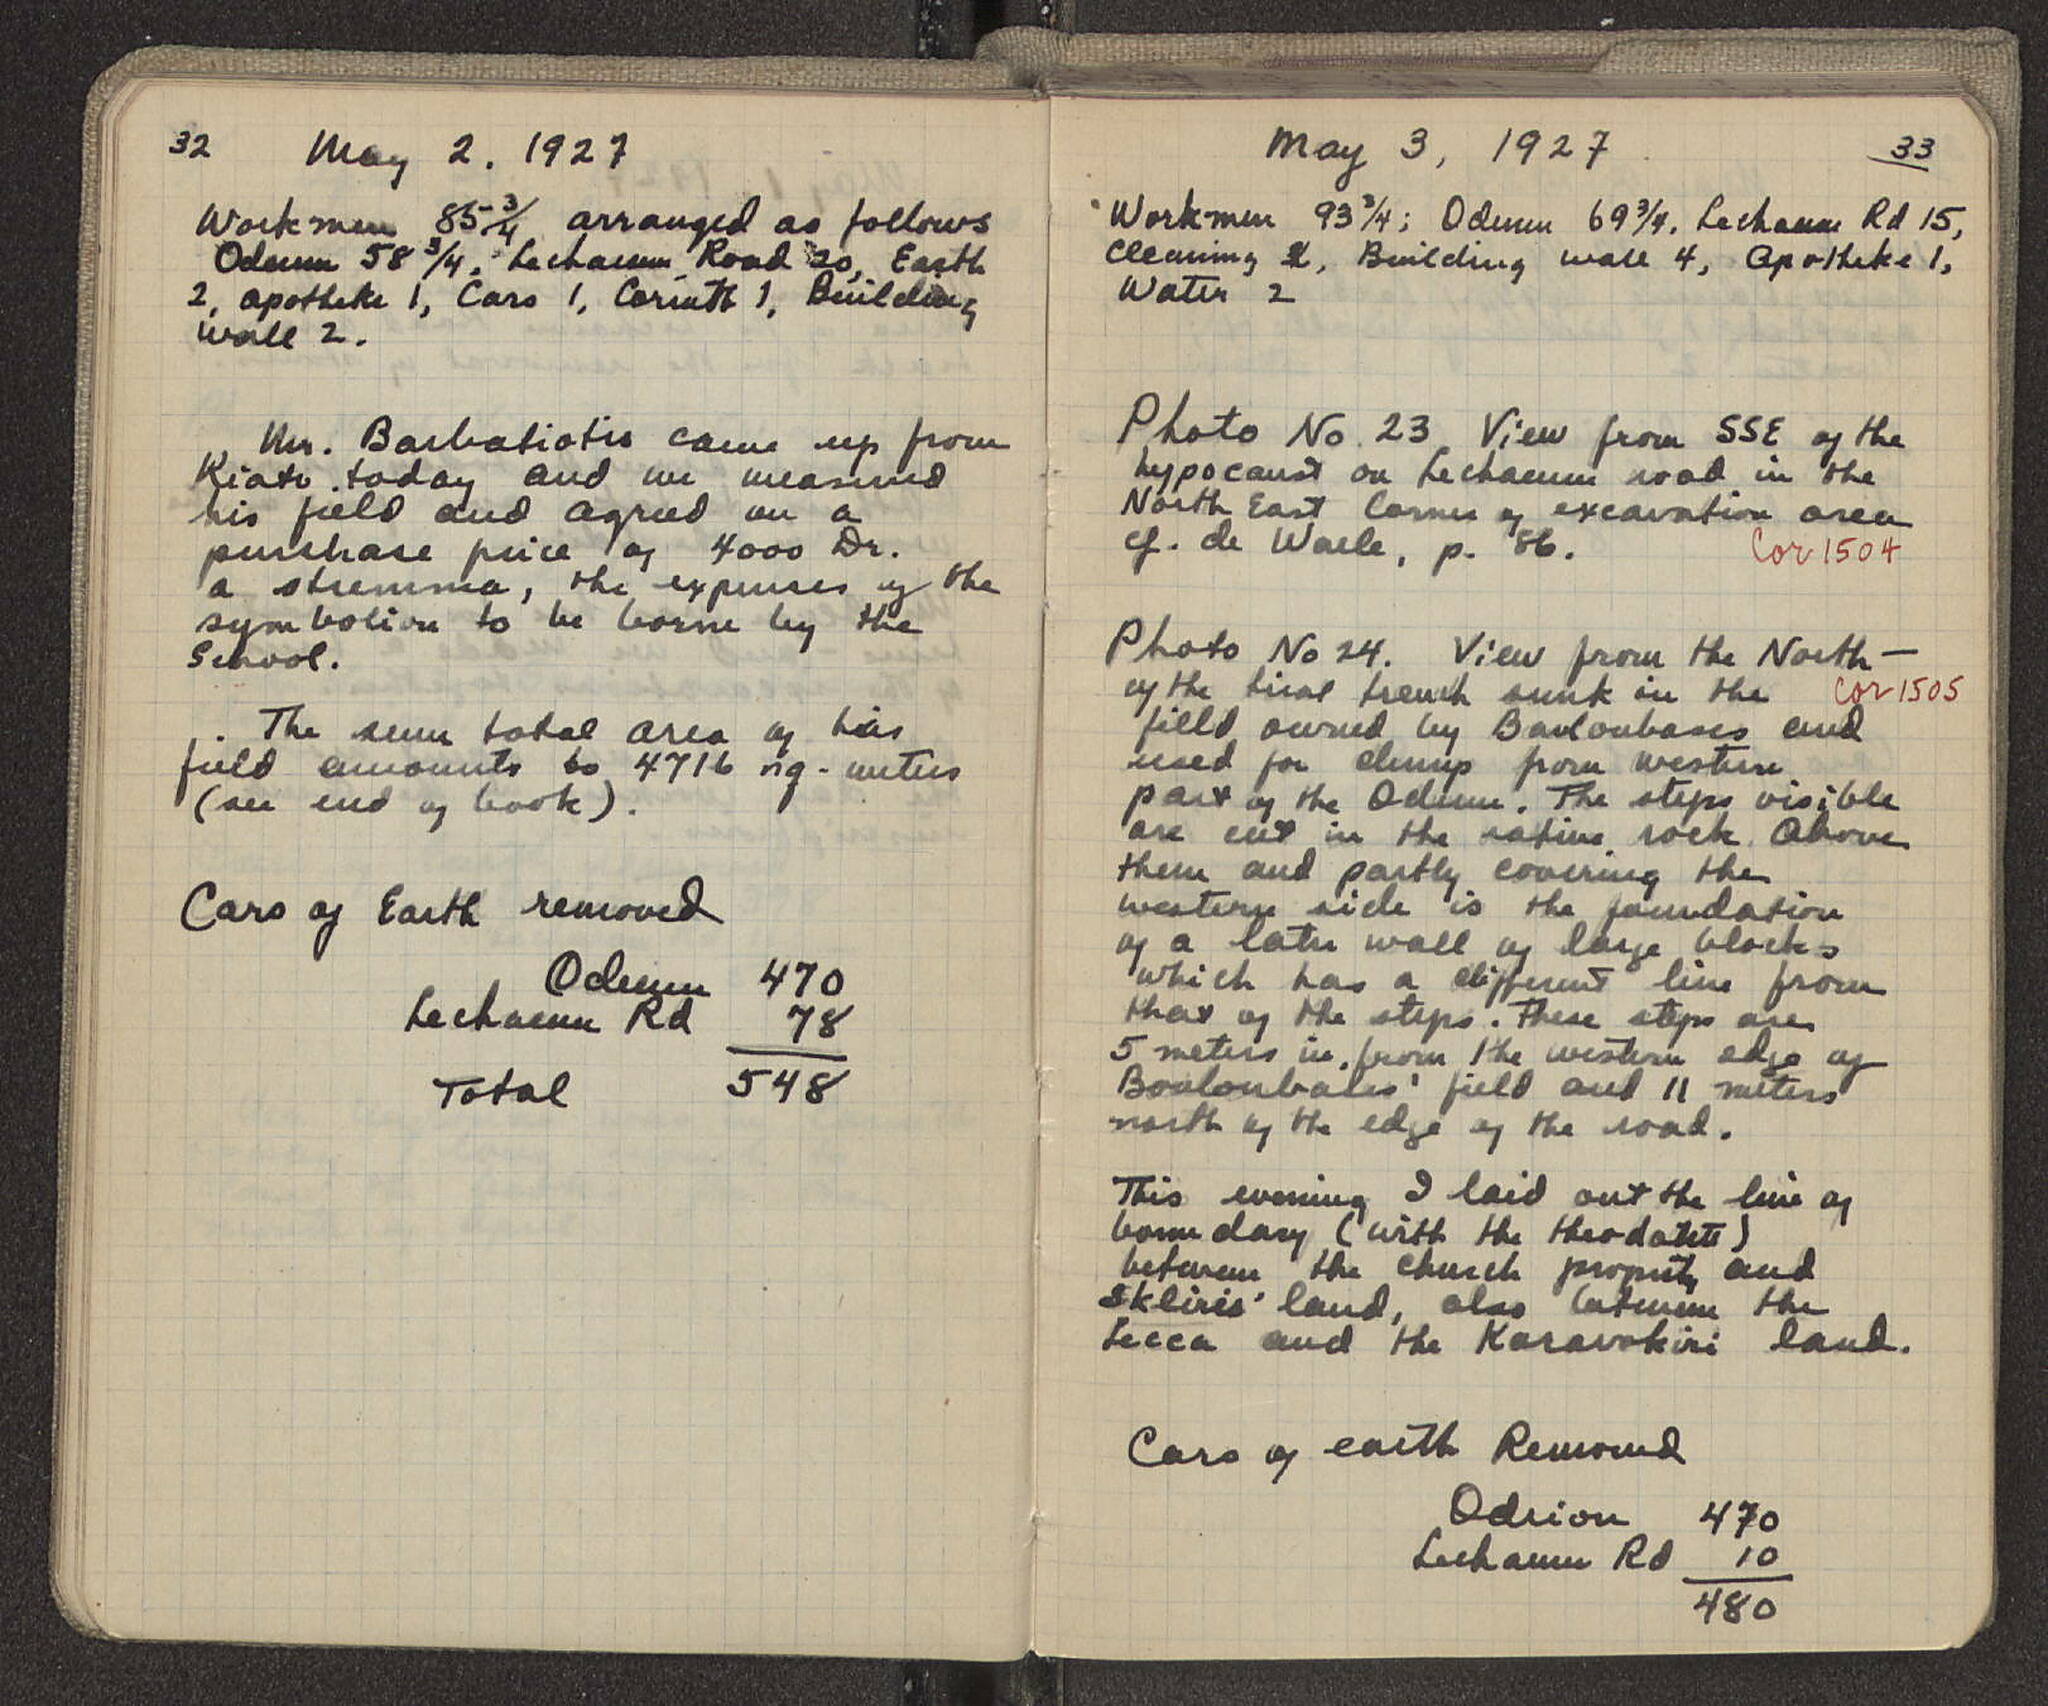 32 May 2. 1927
Workmen 85 3/4 arranged as follows
Odeum 58 3/4, Lechaeum Road 20, Earth
2, apotheke 1, Cars 1, Corinth 1, Building
wall 2.
Mr. Barbatiotis came up from
Kiato today and we measured
his field and agreed on a
purchase price of 4000 Dr.
a stremma, the expenses of the
symbolion to be borne by the
School.
The sum total area of his
field amounts to 4716 sq. meters
(see end of book).
Cars of Earth removed
Odeum 470
Lechaeum Rd 78
Total 548
May 3, 1927 33
Workmen 93 3/4; Odeum 69 3/4, Lechaeum Rd 15,
Cleaning 2, Building wall 4, Apotheke 1,
Water 2
Photo No. 23 View from SSE of the
hypocaust on Lechaeum road in the
North East corner of excavation area
cf. de Waele, p. 86. Cor 1504
Photo No 24. View from the North –
of the trial trench sunk in the Cor 1505
field owned by and
used for dump from western
part of the Odeum. The steps visible
are cut in the native rock. Above
them and partly covering the
western side is the foundation
of a later wall of large blocks
which has a different line from
that of the steps. These steps are
5 meters in from the western edge of
field and 11 meters
north of the edge of the road.
This evening I laid out the line of
boundary (with the theodolite)
between the church property and
Skliris' land, also between the
Lecca and the Karavokiri land.
Cars of earth Removed
Odeion 470
Lechaeum Rd 10
480